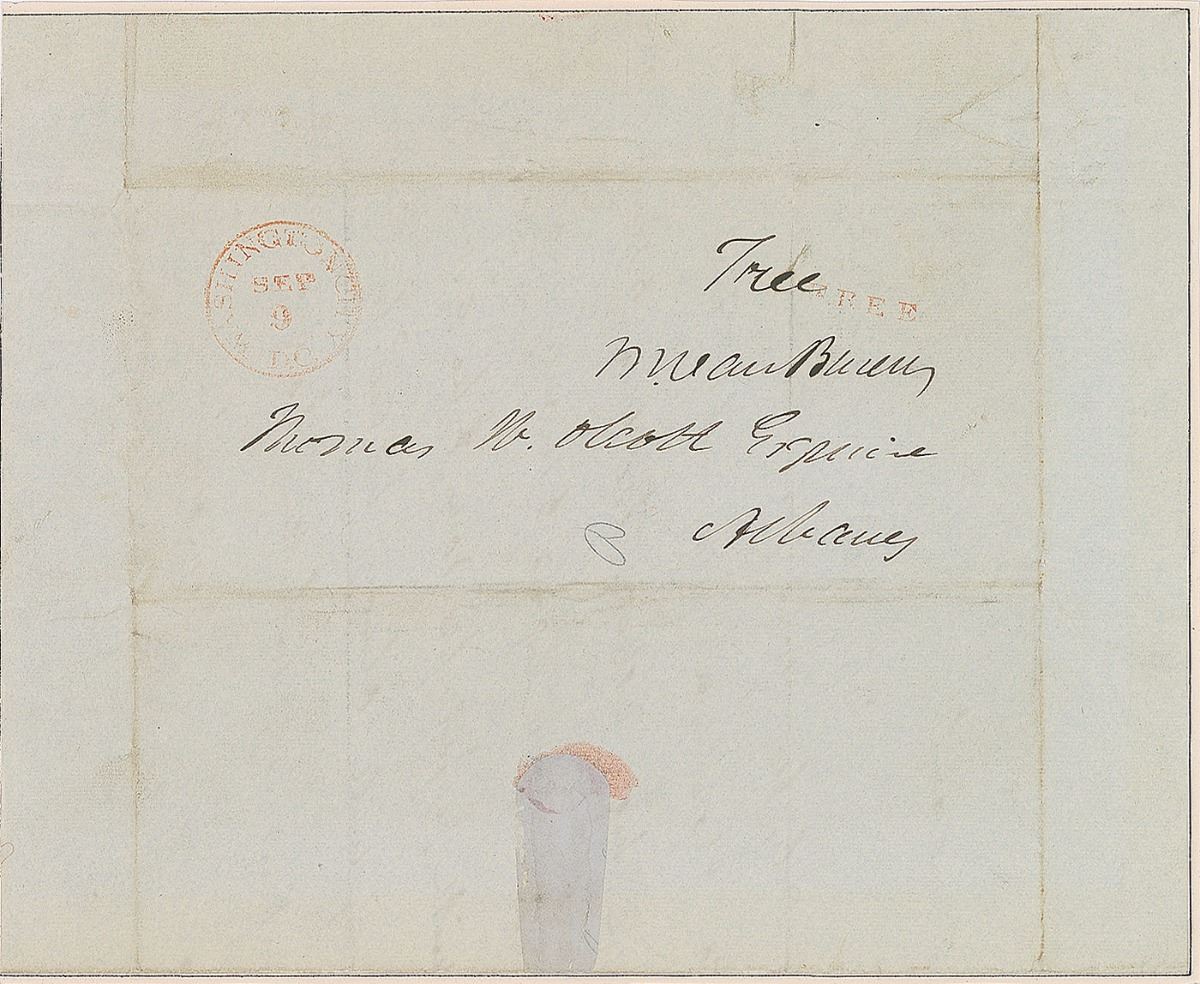 WASHINGTON CITY D.C.
SEP
9
Free
FREE
M Van Buren
Thomas W. Olcott Esquire
Albany